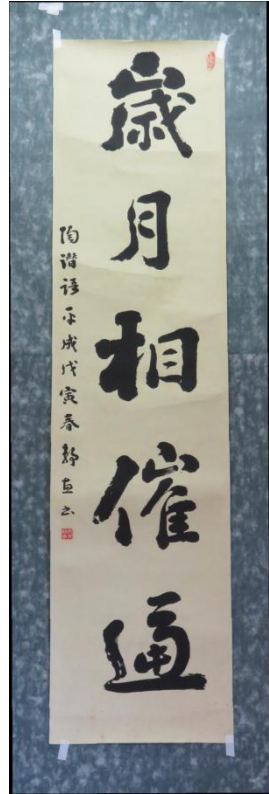 歳月相催逼
陶潜語平成戊寅春静恵書